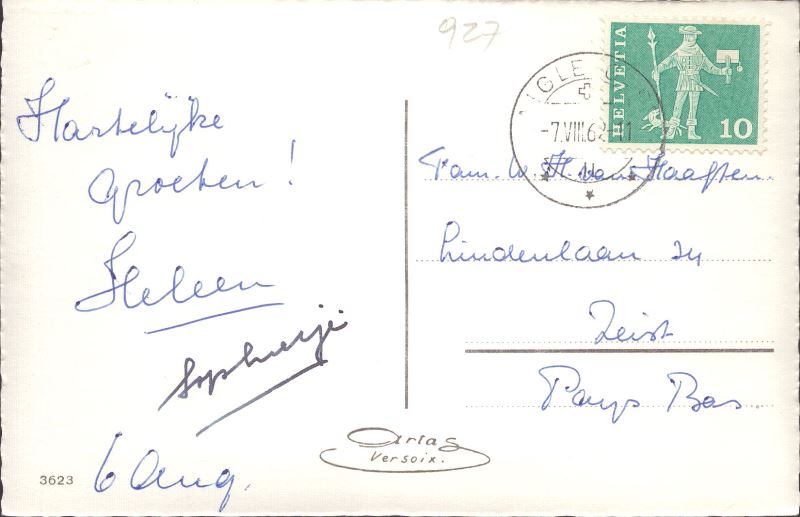 927
HELVETIA
10
AIGLE
-7.VIII.62-11
Hartelijke
groeten!
Heleen
Sophietje
6 Aug.
Fam. W. H. van Haaften.
Lindenlaan 24
Zeist
Pays Bas
Artas
Versoix.
3623